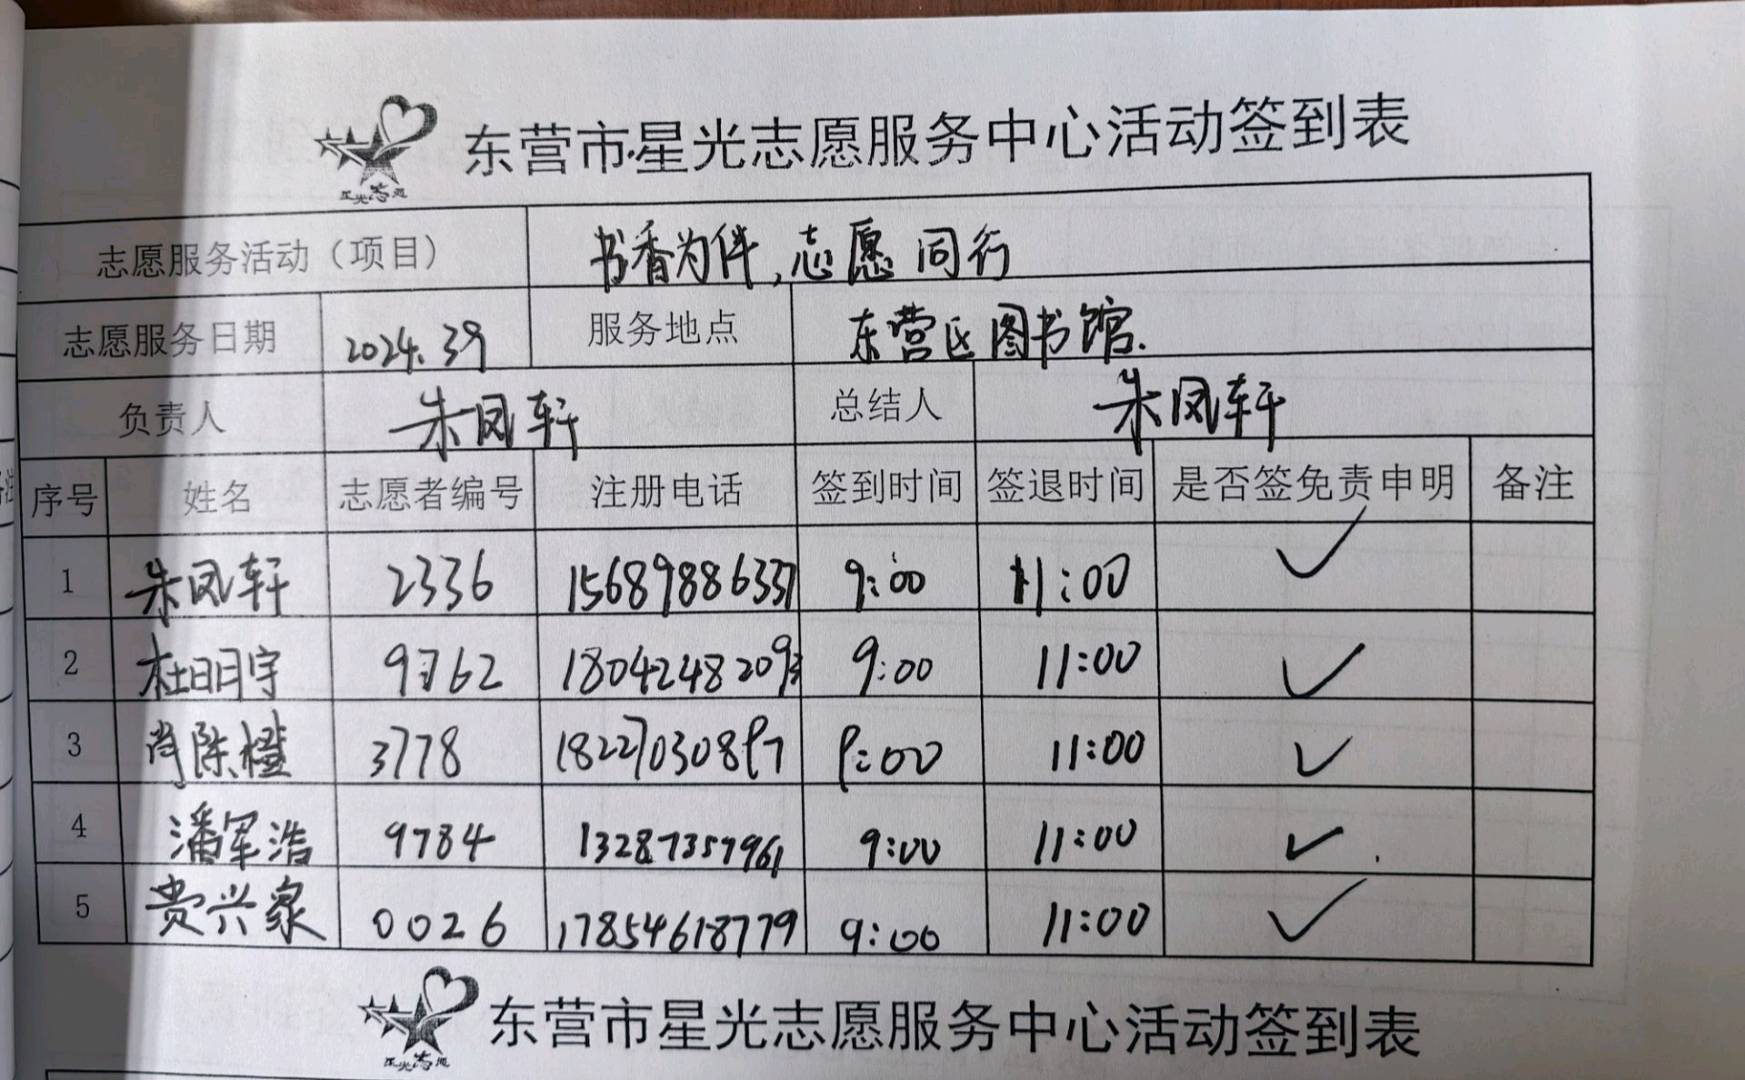 东营市星光志愿服务中心活动签到表
星光志愿
志愿服务活动（项目） 书香为伴,志愿同行
志愿服务日期 2024.39 服务地点 东营区图书馆.
负责人 朱凤轩 总结人 朱凤轩
序号 姓名 志愿者编号 注册电话 签到时间 签退时间 是否签免责申明 备注
1 朱凤轩 2336 15689886337 9:00 11:00 ✓
2 杜明宇 9762 9:00 11:00 ✓
3 肖陈橙 3778 18227030897 9:00 11:00 ✓
4 潘军浩 9784 13287357961 9:00 11:00 ✓
5 贵兴家 0026 17854618779 9:00 11:00 ✓
东营市星光志愿服务中心活动签到表
星光志愿